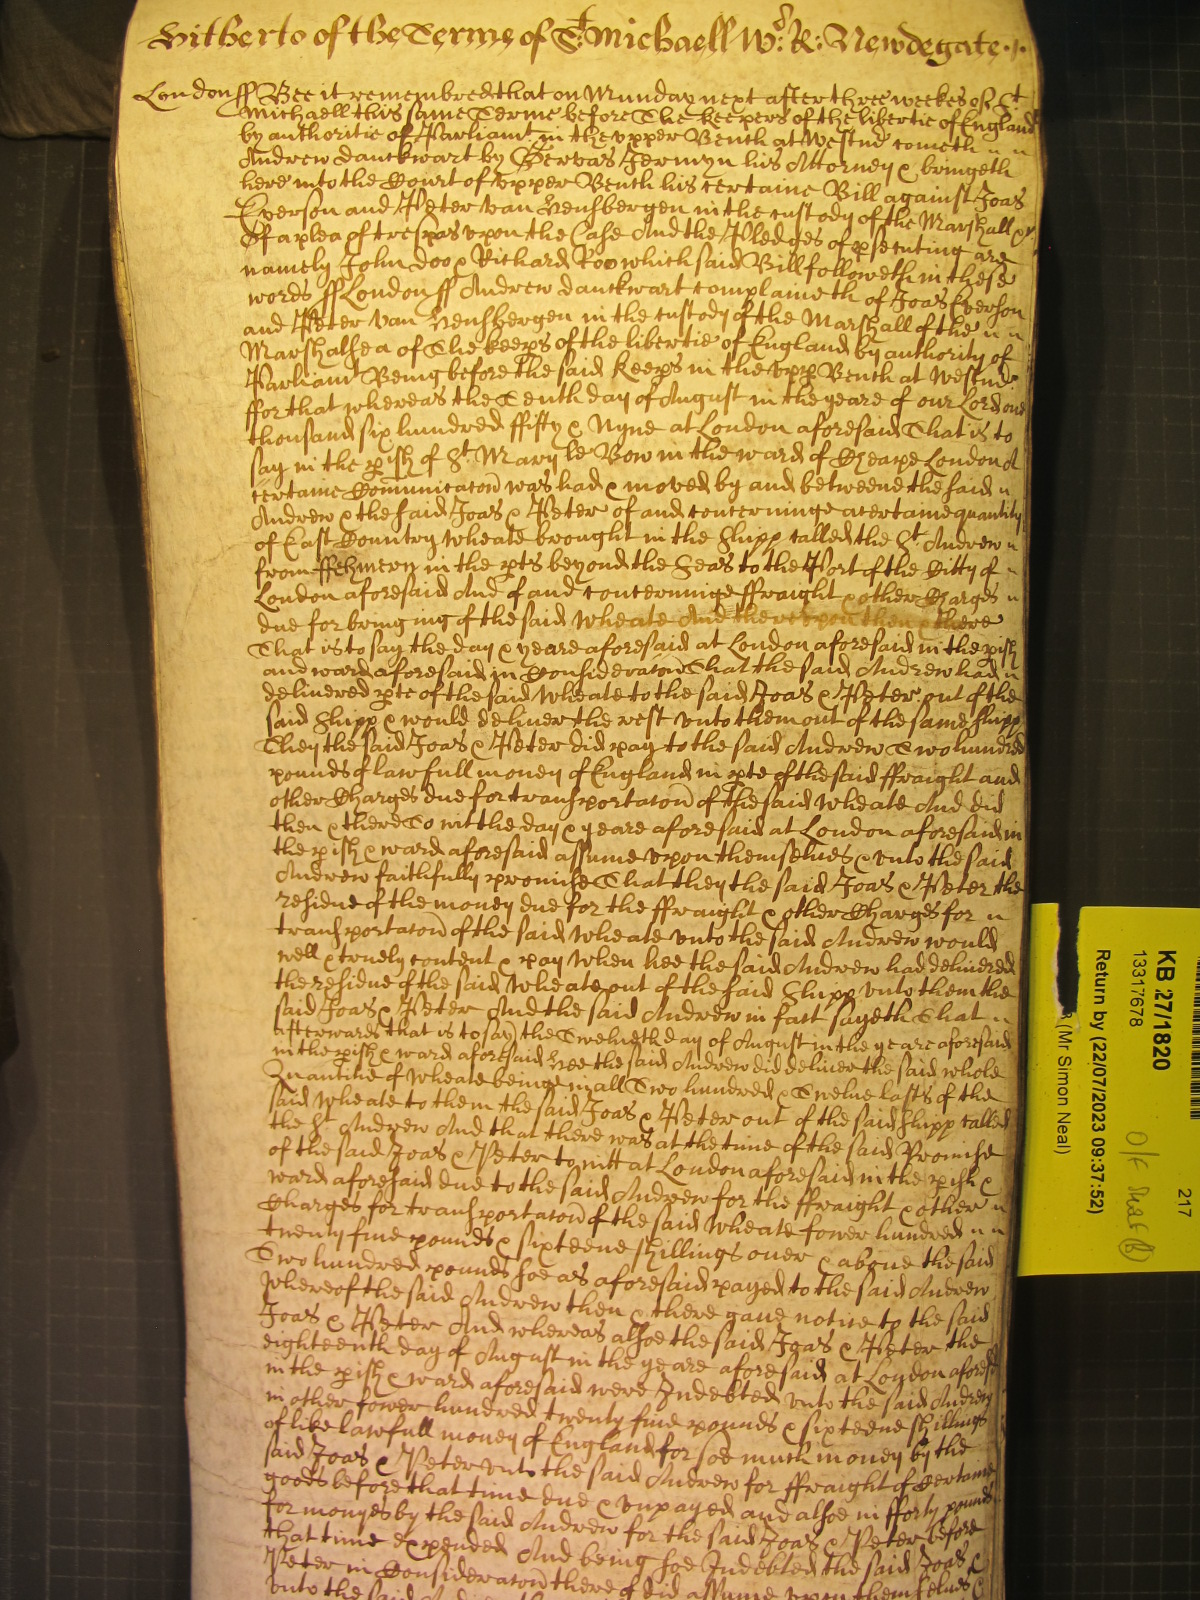 Hitherto of the Terme of St: Michaell Wt: R: Newdegate
London ff Bee it remembred that on Munday next after three weekes of St
Michaell this same Terme before The keepers of the libertie of England
by authoritie of Parliamt in the vpper Bench at Westmr cometh
Andrew Danckwart by Gervas Jermyn his Attorney & bringeth
here into the Court of vpper Bench his certaine Bill against Joas
Everson and Peter van Hensbergen in the custody of the Marshall &c
Of a plea of trespas vpon the Case And the Pledges of psecuting are
namely John Doo & Richard Roo which said Bill followeth in these
words ff London ff Andrew Danckwart complaineth of Joas Everson
and Peter van Hensbergen in the custody of the Marshall of the
Marshalsea of The keeps of the libertie of England by authority of
Parliamt Being before the said keeps in the vpp Bench at Westmr
ffor that whereas the Tenth day of August in the yeare of our Lord one
thousand six hundred ffifty & Nyne at London aforesaid That is to
say in the pish of St. Mary le Bow in the ward of Cheape London A
certaine Communicacon was had & moved by and betweene the said
Andrew & the said Joas & Peter of and concerninge a certaine quantity
of East Country wheate brought in the Shipp called the St. Andrew
from in the pts beyond the Seas to the Port of the Citty of
London aforesaid And of and concerninge ffraight & other Charges
due for bringing of the said wheate And therevpon then & there
That is to say the day & yeare aforesaid at London aforesaid in the pish
and ward aforesaid in Consideracon That the said Andrew had
delivered pte of the said wheate to the said Joas & Peter out of the
said Shipp & would deliver the rest vnto them out of the same Shipp
They the said Joas & Peter did pay to the said Andrew Two hundred
pounds of lawfull money of England in pte of the said ffraight and
other Charges due for transportacon of the said wheate And did
then & there To wit the day & yeare aforesaid at London aforesaid in
the pish & ward aforesaid assume vpon themselues & vnto the said
Andrew faithfully promise That they the said Joas & Peter the
residue of the money due for the ffraight & other Charges for
transportacon of the said wheate vnto the said Andrew would
well & truely content & pay when hee the said Andrew had delivered
the residue of the said wheate out of the said Shipp vnto them the
said Joas & Peter And the said Andrew in fact sayeth That
afterwards that is to say the Twelueth day of August in the yeare aforesaid
in the pish & ward aforesaid hee the said Andrew did deliver the said whole
Quantitie of wheate being in all Two hundred & Twelue lasts of the
said wheate to them the said Joas & Peter out of the said Shipp called
the St Andrew And that there was at the time of the said Promise
of the said Joas & Peter to witt at London aforesaid in the pish &
ward aforesaid due to the said Andrew for the ffraight & other
Charges for transportacon of the said wheate fower hundred
twenty fiue pounds & sixteene shillings over & aboue the said
Two hundred pounds soe as aforesaid payed to the said Andrew
whereof the said Andrew then & there gaue notice to the said
Joas & Peter And whereas alsoe the said Joas & Peter the
eighteenth day of August in the yeare aforesaid at London aforesd
in the pish & ward aforesaid were Indebted vnto the said Andrew
in other fower hundred twenty fiue pounds & sixteene shillings
of like lawfull money of England for soe much money by the
said Joas & Peter vnto the said Andrew for ffraight of certaine
goods before that time due & vnpayed and alsoe in fforty pounds
for monyes by the said Andrew for the said Joas & Peter before
that time expended And being soe Indebted the said Joas &
Peter in Consideracon thereof did assume vpon themselues &
vnto the said
KB 27/1820
13317678
Return by (22/07/2023 09:37:52)
(Mr Simon Neal)
217